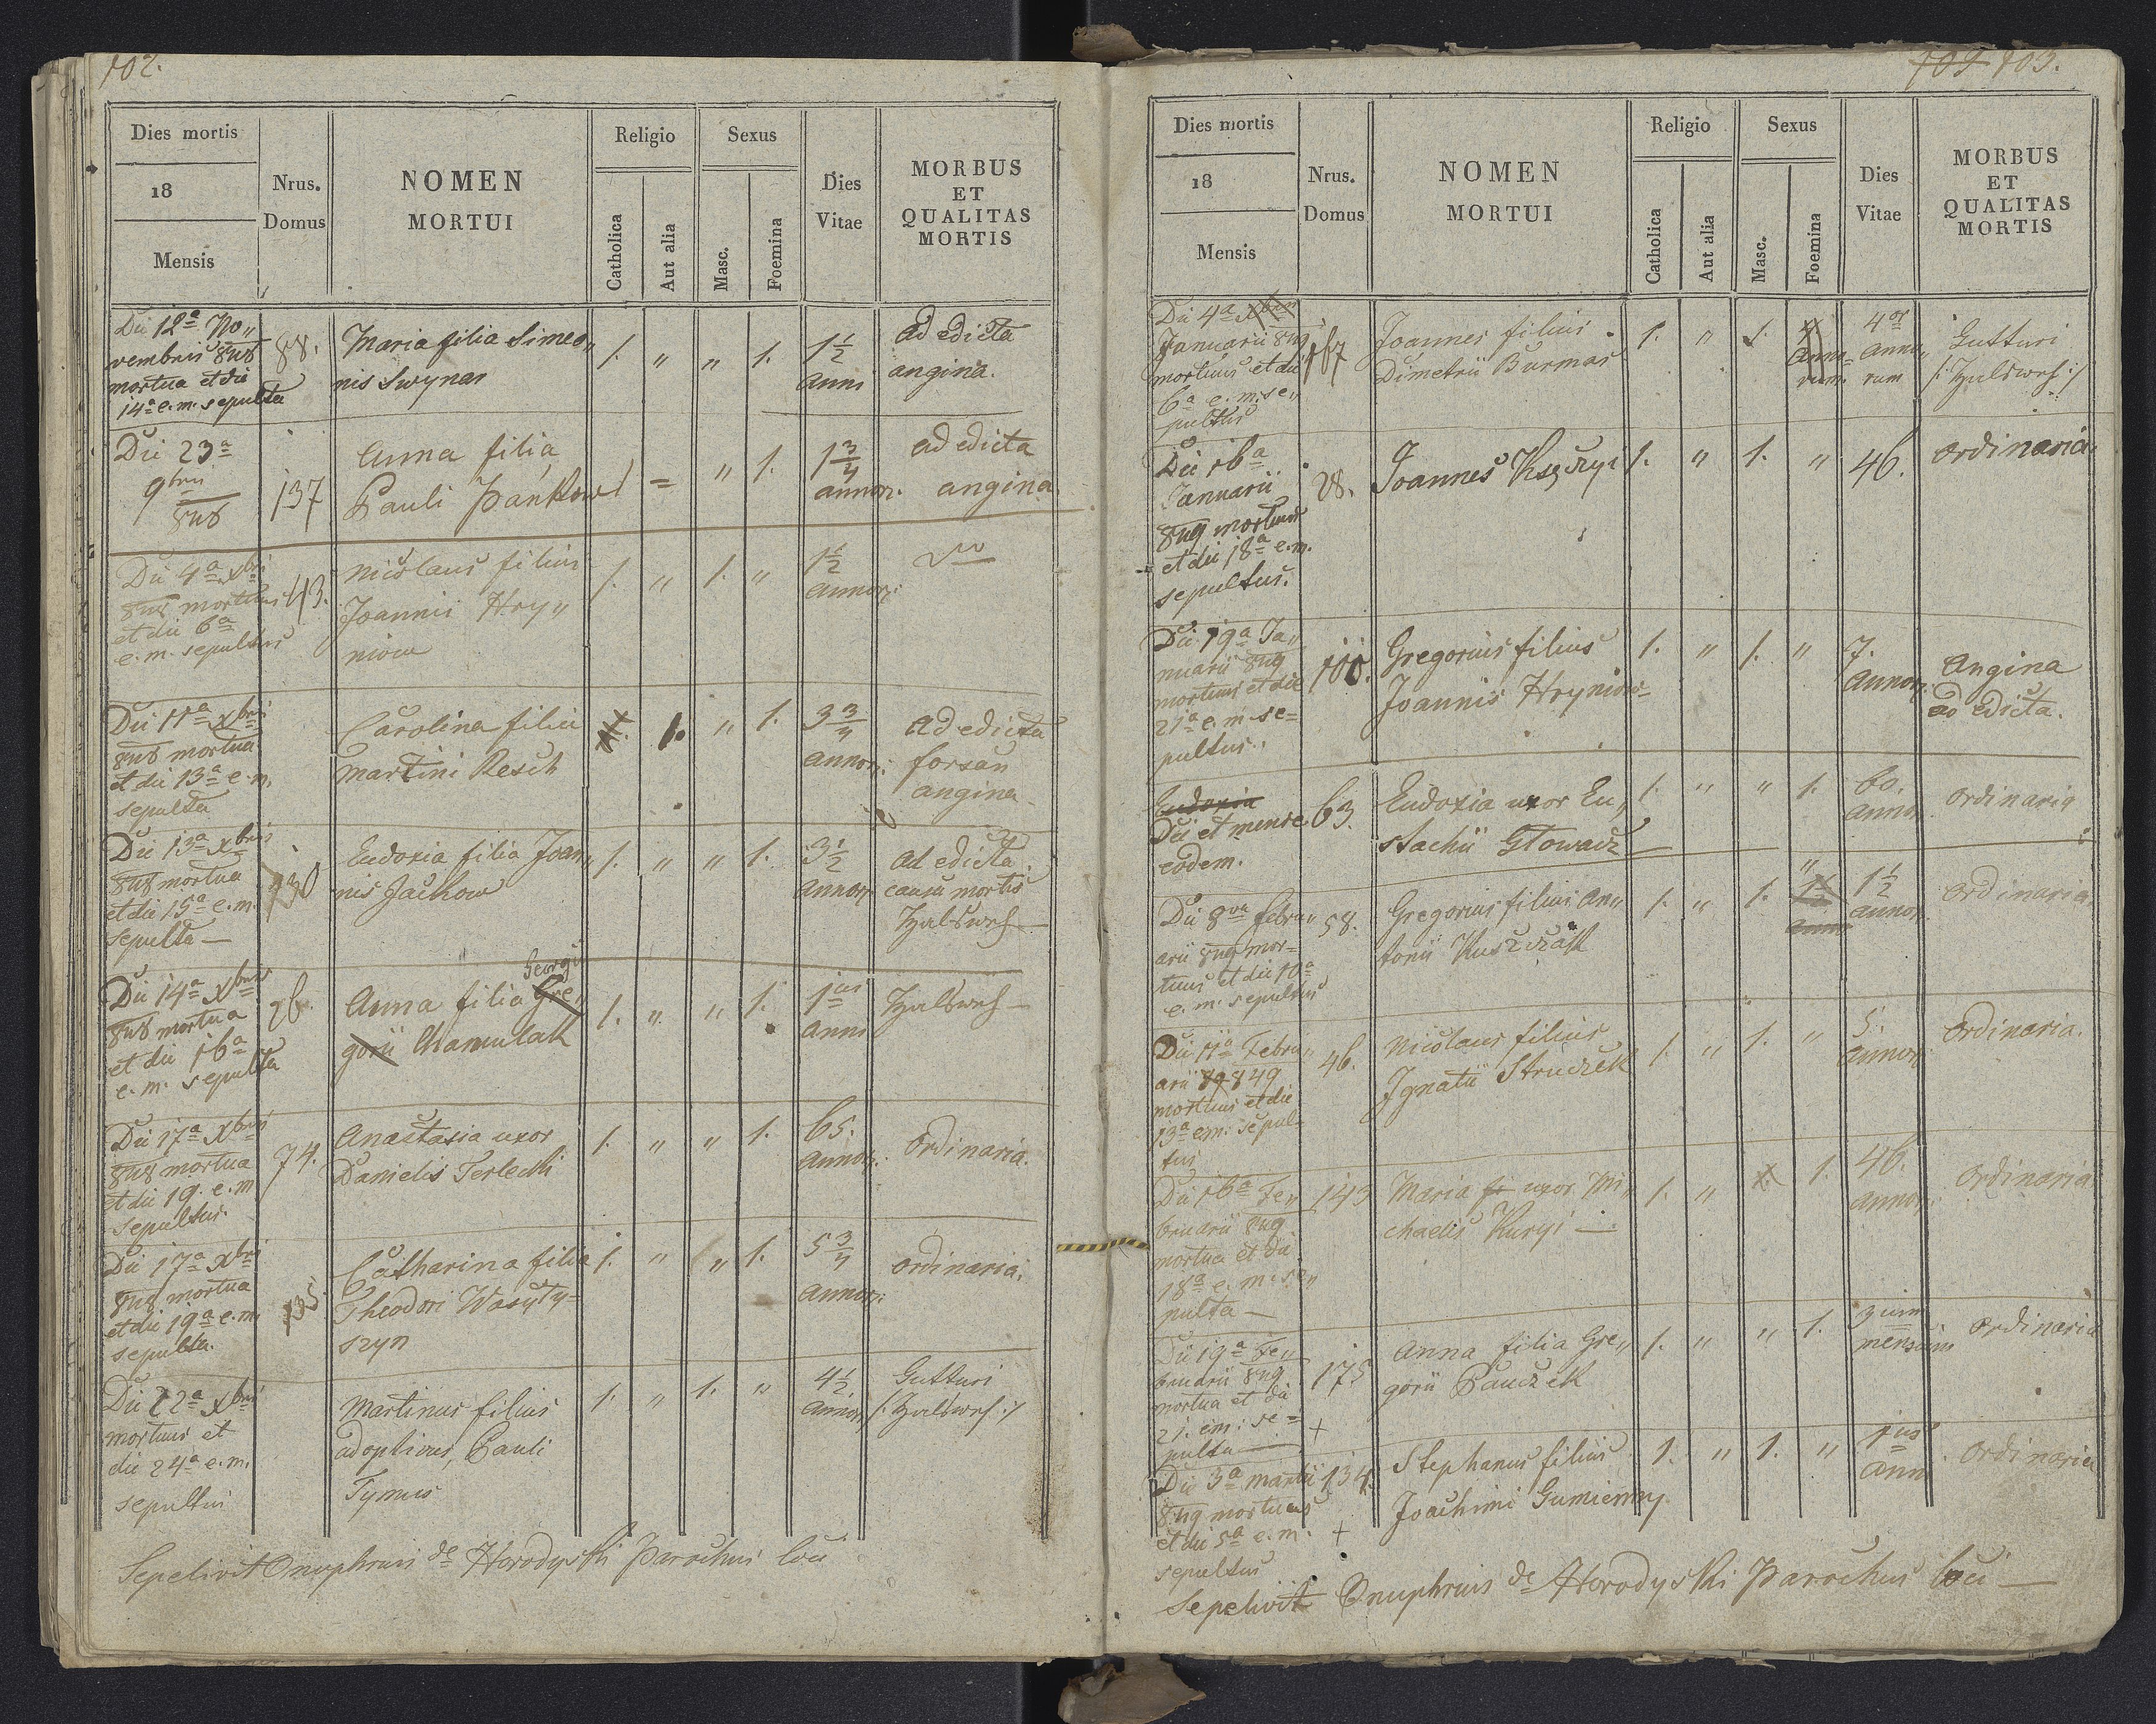 102.
Dies mortis
18
Mensis
Nrus.
Domus
NOMEN
MORTUI
Religio
Catholica
Aut alia
Sexus
Masc.
Foemina
Dies
Vitae
MORBUS
ET
QUALITAS
MORTIS
Die 12a No„
vembris 848
mortua et die
14a e. m. sepulta
88.
Maria filia Simeo„
nis Swynar
1. „ „ 1.
1 1/2
anni
ad edicta
angina.
Die 23a
9bris
848
137
Anna filia
Pauli Pańkow
1 = „ 1.
1 3/4
annor.
ad edicta
angina
Die 4a Xbris
848 mortuus
et die 6a
e. m. sepultus
43.
Nicolaus filius
Joannis Hry„
niow
1. „ 1. „
1 1/2
annor.
Die 11a Xbris
848 mortua
et die 13a e. m.
sepulta
Carolina filia
Martini Resch
1. „ 1.
3 3/4
annor.
ad edicta
forsan
angina
Die 13a Xbris
848 mortua
et die 15a e. m.
sepulta —
130
Eudoxia filia Joan„
nis Jackow
1. „ „ 1.
3 1/2
annor.
ad edicta
causa mortis
Halsweh —
Die 14a Xbris
848 mortua
et die 16a
e. m. sepulta
26.
Georgii
Anna filia Gre„
gorii Mamulak
1. „ „ 1.
1us
anni
Halsweh —
Die 17a Xbris
848 mortua
et die 19. e. m
sepultus.
74.
Anastasia uxor
Danielis Terlecki
1. „ „ 1.
65.
annor.
Ordinaria.
Die 17a Xbris
848 mortua
et die 19a e. m.
sepulta.
135.
Catharina filia
Theodori Wasyły=
szyn
1. „ „ 1.
5 3/4
annor.
ordinaria.
Die 22a Xbris
mortuus et
die 24a e. m.
sepultus
Martinus filius
adoptivus, Pauli
Tymus
1. „ 1. „
4 1/2
annor.
Gutturi
/: Halsweh :/
Sepelivit Onuphrius de Horodyski Parochus loci
109 103.
Dies mortis
18
Mensis
Nrus.
Domus
NOMEN
MORTUI
Religio
Catholica
Aut alia
Sexus
Masc.
Foemina
Dies
Vitae
MORBUS
ET
QUALITAS
MORTIS
Die 4a Xbris
Januarii 849
mortuus et die
6a e. m. se„
pultus
167
Joannes filius
Dimetrii Burmas
1. „ 1.
4
anno=
rum.
4or
anno„
rum
Gutturi
/: Halsweh :/
Die 16a
Januarii
849 mortuus
et die 18a e. m.
sepultus.
28.
Joannes
1. „ 1. „
46.
ordinaria.
Die 19a Ja„
nuarii 849
mortuus et die
21a e. m. se=
pultus.
100.
Gregorius filius
Joannis Hryniow=
1. „ 1. „
7.
annor.
Angina
ad edicta.
Eudoxia
Die et mense
eodem.
63.
Eudoxia uxor Eu„
stachii Głowacz —
1. „ „ 1.
60.
annor.
ordinaria
Die 8va Febru„
arii 849 mor=
tuus et die 10a
e. m. sepultus
58.
Gregorius filius An„
tonii Kuszczak
1. „ 1. „
1 1/2
anni
1 1/2
annor.
Ordinaria.
Die 11a Febru„
arii 89 849
mortuus et die
13a e.m. sepul=
tus
46.
Nicolaus filius
Ignatii Struczek
1. „ 1. „
5.
annor.
Ordinaria.
Die 16a Fe„
bruarii 849
mortua et die
18a e. m. se„
pulta —
143
Maria fi uxor Mi„
chaelis Kuryi —
1. „ 1. 1.
46.
annor.
Ordinaria
Die 19a Fe„
bruarii 849
mortua et die
21. e.m: se=
pulta — +
175
Anna filia Gre„
gorii Pauczek
1. „ „ 1.
3um
mensium
Ordinaria
Die 3a Martii
849 mortuus
et die 5a e. m. +
sepultus
134.
Stephanus filius
Joachimi Gumienny.
1. „ 1. „
1us
anni
Ordinaria
Sepelivit Onuphrius de Horodyski Parochus loci —